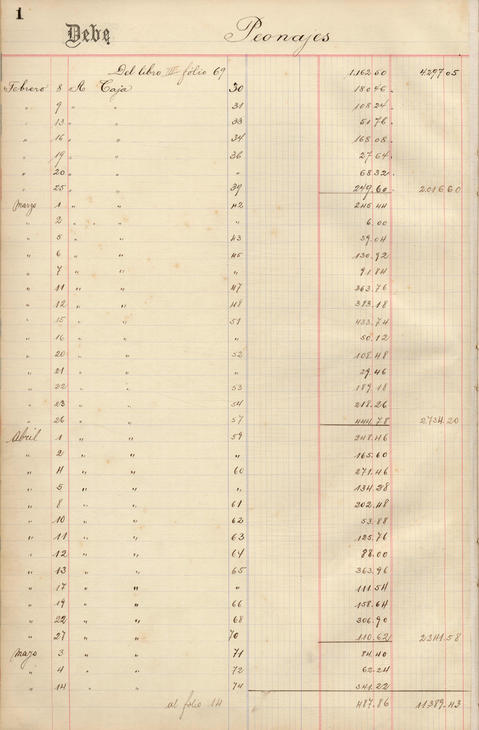 1
Debe Peonajes
Del libro III folio 69 1.162.00 4.297.05
Febrero 8 A Caja 30 180.46
" 9 " " 31 108.24
" 13 " " 33 51.76
" 16 " " 34 168.08
" 19 " " 36 27.64
" 20 " " " 68.32
" 25 " " 39 249.60 2.016.60
Marzo 1 " " 42 245.44
" 2 " " " 6.00
" 5 " " 43 39.04
" 6 " " 45 130.92
" 7 " " " 91.84
" 11 " " 47 363.76
" 12 " " 48 383.18
" 15 " " 51 433.74
" 16 " " " 50.12
" 20 " " 52 108.48
" 21 " " " 29.46
" 22 " " 53 189.18
" 23 " " 54 218.26
" 26 " " 57 444.78 2.734.20
Abril 1 " " 59 248.46
" 2 " " " 165.60
" 4 " " 60 271.46
" 5 " " " 134.38
" 8 " " 61 202.48
" 10 " " 62 53.88
" 11 " " 63 125.76
" 12 " " 64 88.00
" 13 " " 65 363.96
" 17 " " " 111.54
" 19 " " 66 158.64
" 22 " " 68 306.90
" 27 " " 70 110.62 2.341.58
Mayo 3 " " 71 84.40
" 4 " " 72 62.24
" 14 " " 74 341.22
al folio 14 487.86 11.389.43